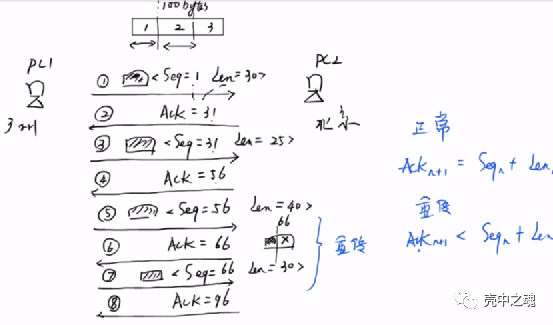 100 bytes
1 2 3
PC1
PC2
① <Seq=1 Len=30>
② Ack=31
③ <Seq=31 Len=25>
④ Ack=56
⑤ <Seq=56 Len=40>
66
×
⑥ Ack=66
⑦ <Seq=66 Len=30>
⑧ Ack=96
重传
正常
Ackn+1 = Seqn + Len
重传
Ackn+1 < Seqn + Len
壳中之魂